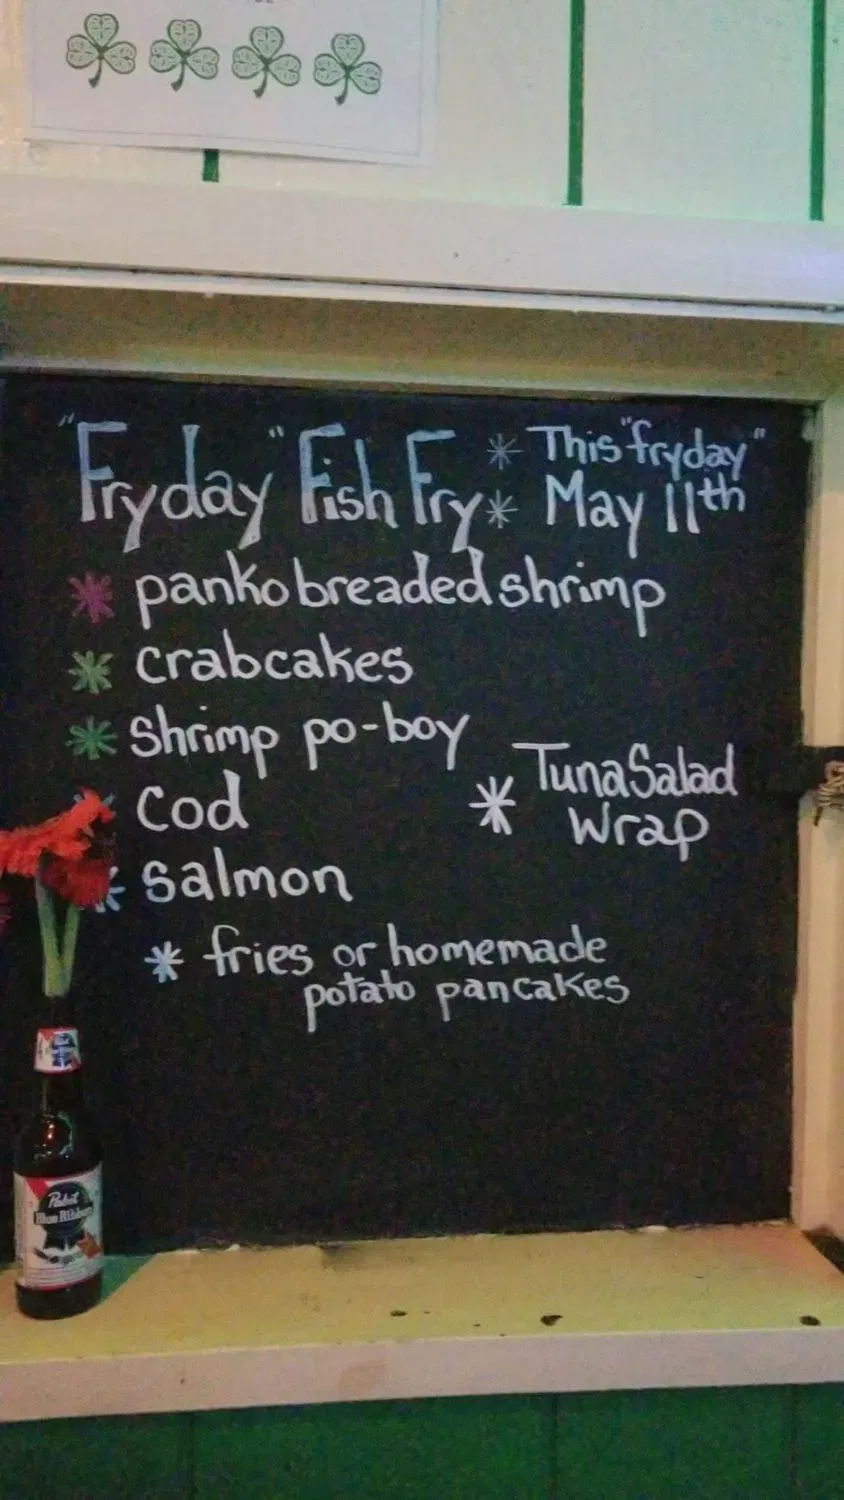 "Fryday" Fish Fry * This "fryday"
* May 11th
* panko breaded shrimp
* crabcakes
* shrimp po-boy
* Tuna Salad
Wrap
* cod
* salmon
* fries or homemade
potato pancakes
Pabst
Blue Ribbon